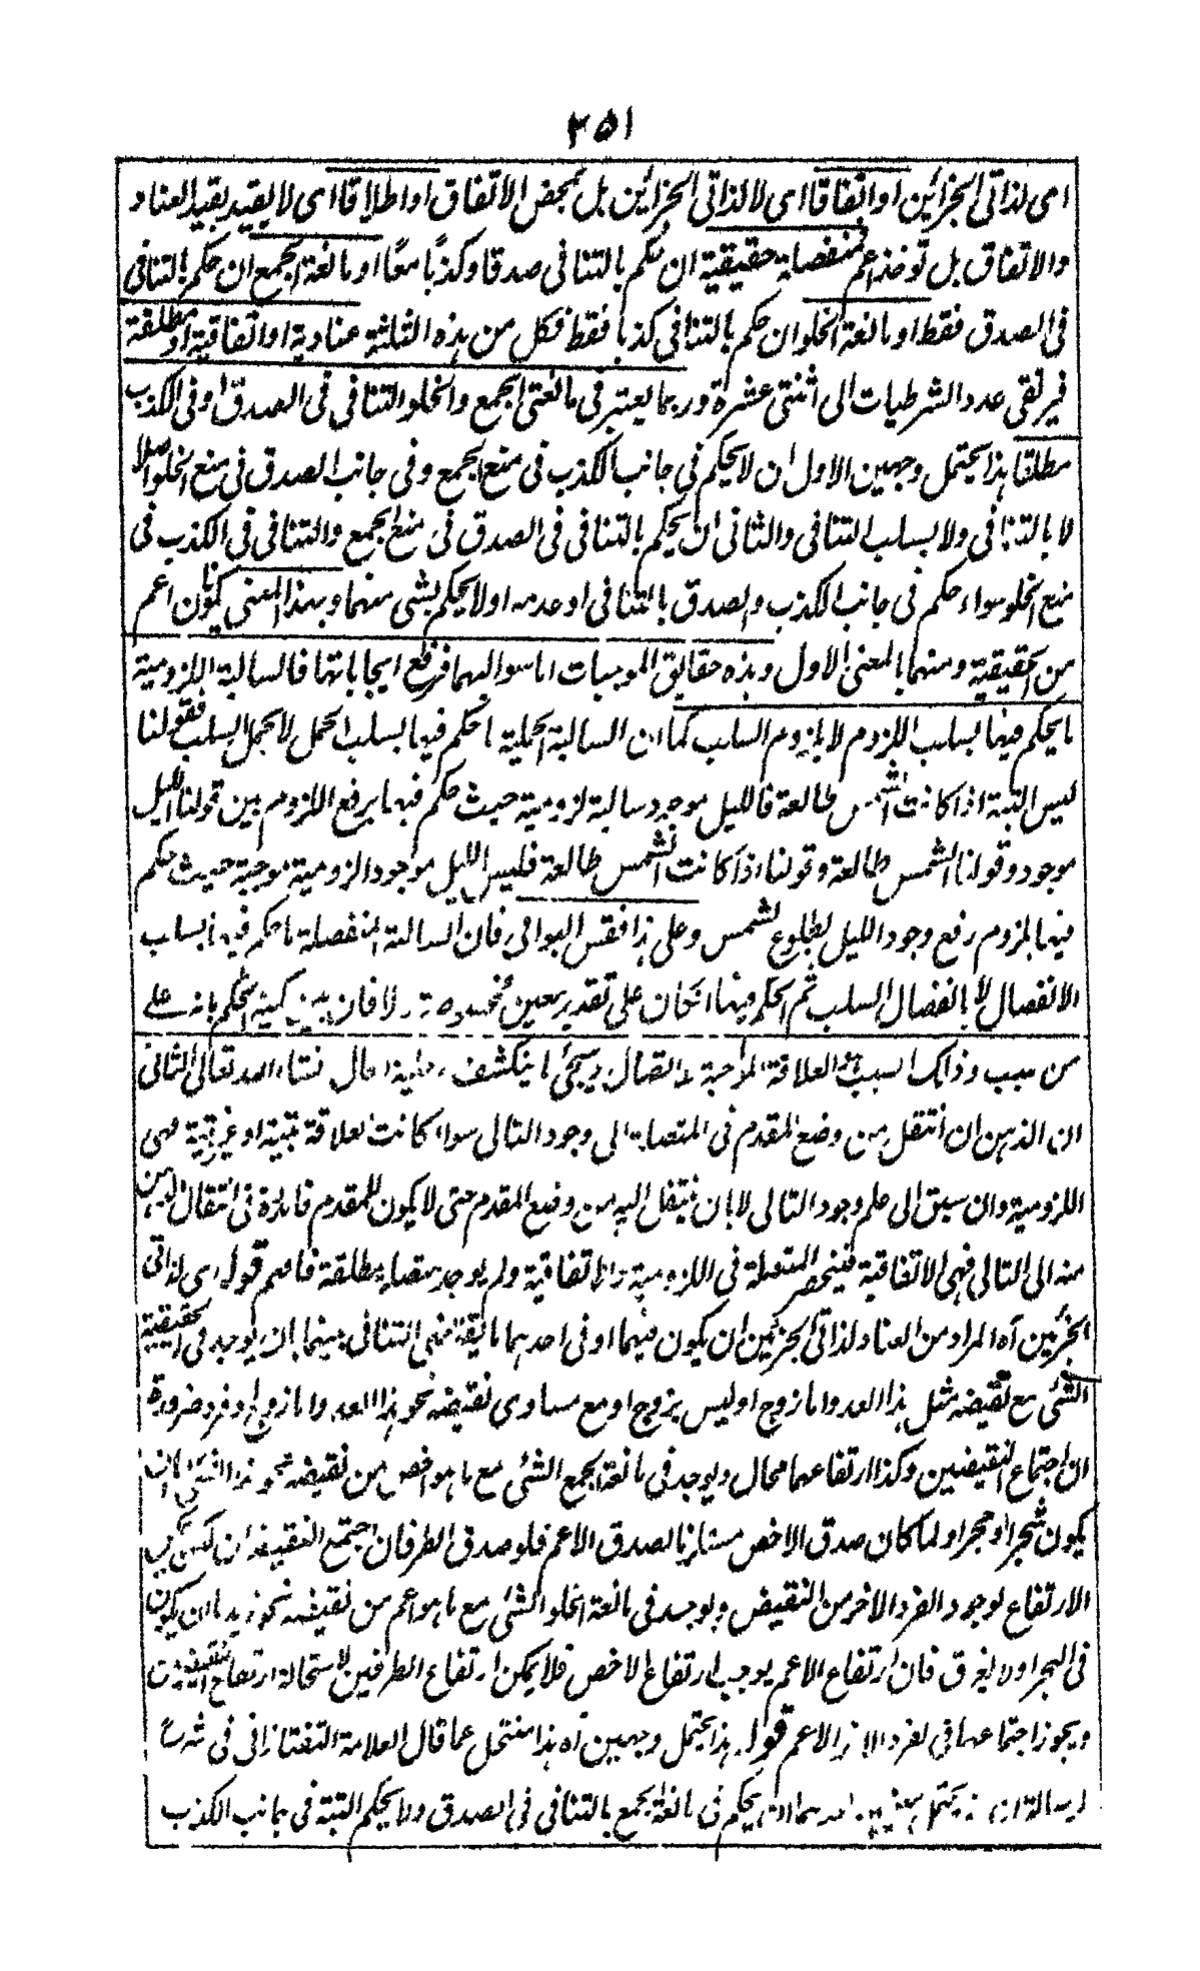 ٣٥١
اى لذاتى الجزأين او اتفاقا اى لا لذاتى الجزأين بل بمحض الاتفاق او اطلاقا اى لا يقيد بقيد العناد
والاتفاق بل توخذ اعم فمنفصلة حقيقية ان حكم بالتنافى صدقا وكذبًا معًا او مانعة الجمع ان حكم بالتنافى
فى الصدق فقط او مانعة الخلو ان حكم بالتنافى كذبا فقط فكل من هذه الثلثة عنادية او اتفاقية او مطلقة
فيرتقى عدد الشرطيات الى اثنتى عشرة وربما يعتبر فى مانعتى الجمع والخلو التنافى فى الصدق او فى الكذب
مطلقا هذا يحتمل وجهين الاول ان لا يحكم فى جانب الكذب فى منع الجمع وفى جانب الصدق فى منع الخلو اصلا
لا بالتنافى ولا بسلب التنافى والثانى ان يحكم بالتنافى فى الصدق فى منع الجمع والتنافى فى الكذب فى
منع الخلو سواء حكم فى جانب الكذب والصدق بالتنافى او عدمه او لا يحكم بشى منهما وبهذا المعنى يكونان اعم
من الحقيقية ومنهما بالمعنى الاول وهذه حقايق الموجبات اما سوالبها فرفع ايجاباتها فالسالبة اللزومية
ما يحكم فيها بسلب اللزوم لا بلزوم السلب كما ان السالبة الحملية ما حكم فيها بسلب الحمل لا بحمل السلب فقولنا
ليس البتة اذا كانت الشمس طالعة فالليل موجود سالبة لزومية حيث حكم فيها برفع اللزوم بين قولنا الليل
موجود وقولنا الشمس طالعة وقولنا اذا كانت الشمس طالعة فليس الليل موجودا لزومية موجبة حيث حكم
فيها بلزوم رفع وجود الليل لطلوع الشمس وعلى هذا فقس البواقى فان السالبة المنفصلة ما حكم فيها بسلب
الانفصال لا بانفصال السلب ثم الحكم فيها انكان على تقدير معين فمخصوصة والا فان بين كمية الحكم بانه على
من سبب وذلك السبب هو العلاقة الموجبة للاتصال وسيجئ ما ينكشف الحال نشاء الله تعالى الثانى
ان الذهن ان انتقل من وضع المقدم فى المتصلة الى وجود التالى سواء كانت لعلاقة بينة او غير بينة فهى
اللزومية وان سبق الى علم وجود التالى لا بان ينتقل اليه من وضع المقدم حتى لا يكون للمقدم فائدة فى انتقال الذهن
منه الى التالى فهى الاتفاقية فينحصر المتصلة فى اللزومية والاتفاقية ولم يوجد متصلة مطلقة فافهم قوله اى لذاتى
الجزئين آه المراد من العناد لذاتى الجزئين ان يكون فيهما او فى احدهما ما يقتضى التنافى بينهما بان يوجد فى الحقيقية
الشئ مع نقيضه مثل هذا العدد اما زوج او ليس بزوج او مع مساوى نقيضه نحو هذا العدد اما زوج او فرد ضرورة
ان اجتماع النقيضين وكذا ارتفاعهما محال ويوجد فى مانعة الجمع الشئ مع ما هو اخص من نقيضه نحو هذا الشئ اما ان
يكون شجرا او حجرا ولما كان صدق الاخص مستلزما لصدق الاعم فلو صدق الطرفان اجتمع النقيضان لكن يمكن
الارتفاع لوجود الفرد الآخر من النقيض ويوجد فى مانعة الخلو الشئ مع ما هو اعم من نقيضه نحو زيد اما ان يكون
فى البحر او لا يغرق فان ارتفاع الاعم يوجب ارتفاع الاخص فلا يمكن ارتفاع الطرفين لاستحالة ارتفاع النقيضين
ويجوز اجتماعهما فى الفرد الآخر الاعم قوله هذا يحتمل وجهين آه هذا منتحل عما قال العلامة التفتازانى فى شرح
الرسالة ان يحتمل احدهما ان يحكم فى مانعة الجمع بالتنافى فى الصدق ولا يحكم البتة فى جانب الكذب